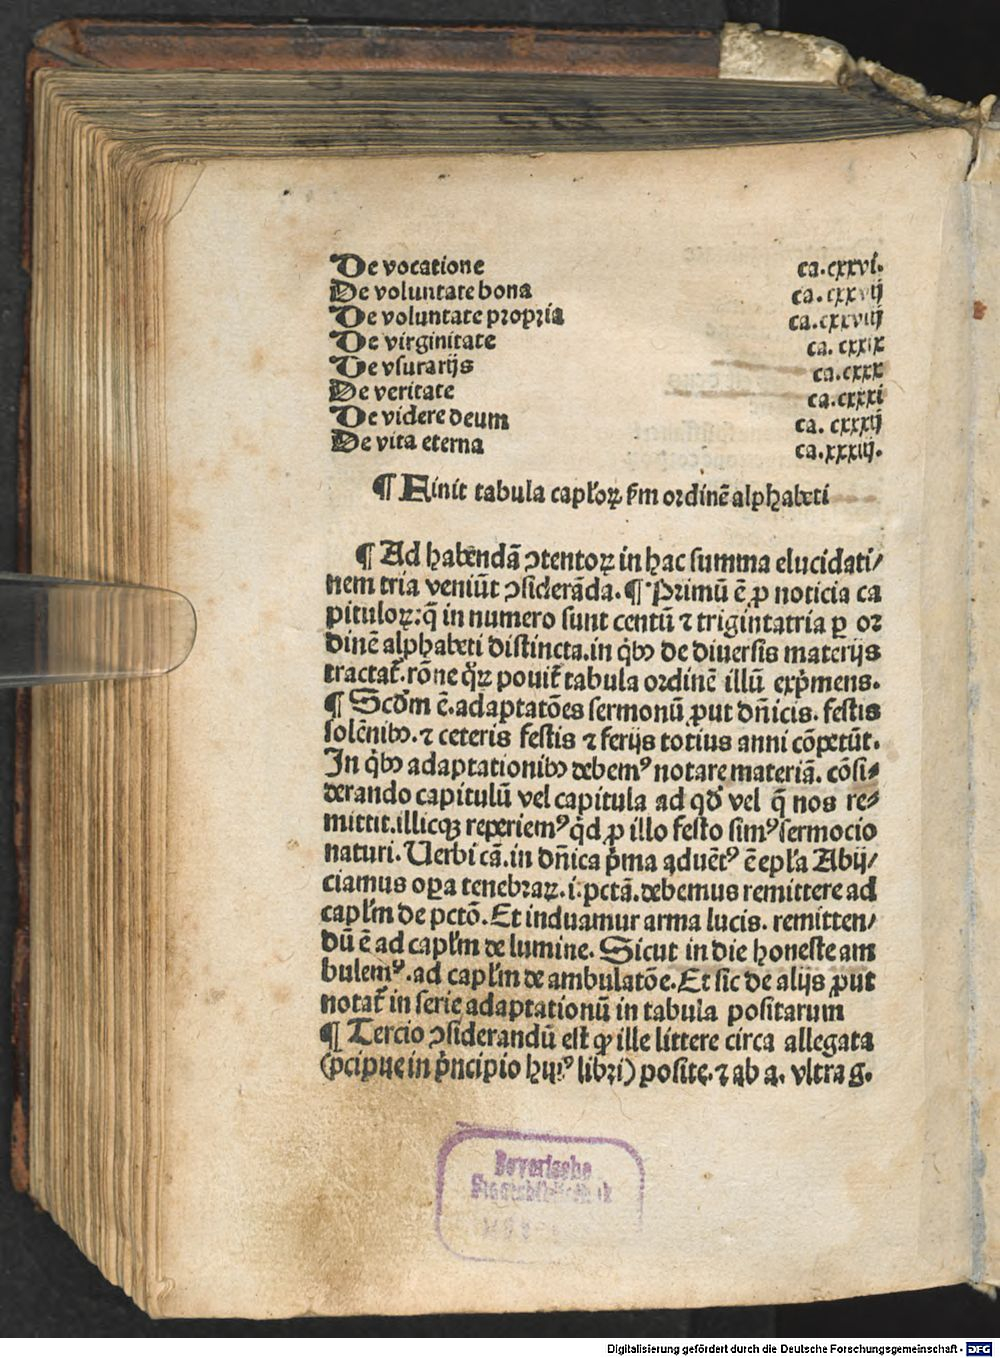 De vocatione ca.cxxvi.
De voluntate bona ca.cxxvij
De voluntate propria ca.cxxviij
De virginitate ca. cxxix
De vsurarijs ca.cxxx
De veritate ca.cxxxi
De videre deum ca. cxxxij
De vita eterna ca.xxxiij.
¶ Finit tabula capl'oꝝ ẜm ordinē alphabeti
¶ Ad habendā ↄtentoꝝ in hac summa elucidati/
nem tria veniūt ↄsiderāda. ¶ Primū ē ꝓ noticia ca
pituloꝝ: q̄ in numero sunt centū ⁊ trigintatria ꝑ or
dinē alphabeti distincta. in qͥbꝰ de diuersis materijs
tractat̉. rōne qͦꝝ ponit̉ tabula ordinē illū exp̃mens.
¶ Scd̓m ē. adaptatōes sermonū ꝓut dn̄icis. festis
solēnibꝰ. ⁊ ceteris festis ⁊ ferijs totius anni cōpetūt.
In qͥbꝰ adaptationibꝰ debemꝰ notare materiā. cōsi⸗
derando capitulū vel capitula ad qd̓ vel q̄ nos re⸗
mittit. illicqꝫ reperiemꝰ qͥd ꝓ illo festo simꝰ sermocio
naturi. Uerbi cā. in dn̄ica p̃ma aduētꝰ ē epl'a Abij/
ciamus oꝑa tenebraꝝ. i. pctā. debemus remittere ad
capl'm de pctō. Et induamur arma lucis. remitten/
dū ē ad capl'm de lumine. Sicut in die honeste am
bulemꝰ. ad capl'm de ambulatōe. Et sic de alijs ꝓut
notat̉ in serie adaptationū in tabula positarum
¶ Tercio ↄsiderandū est qꝙ ille littere circa allegata
(p̄cipue in p̃ncipio huiꝰ libri) posite. ⁊ ab a. vltra g.
Bayerische
Staatsbibliothek
Digitalisierung gefördert durch die Deutsche Forschungsgemeinschaft - DFG